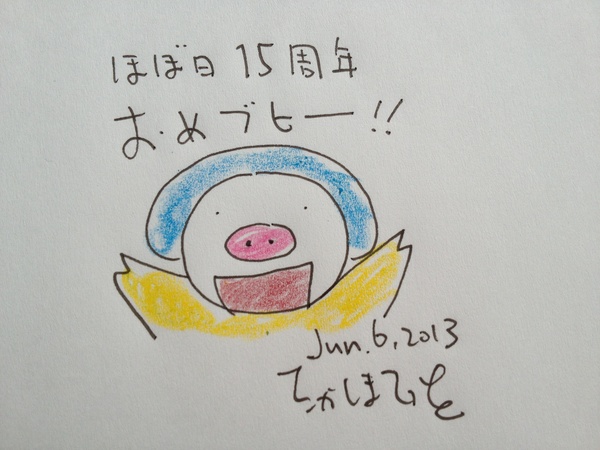 ほぼ日 15周年
おめブヒー!!
Jun.6,2013